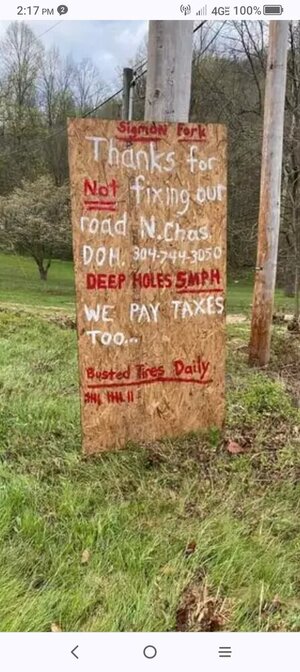 2:17 PM 2
4GE 100%
Sigmon Fork
Thanks for
Not fixing our
road N.Chas.
DOH. 304-744-3050
DEEP HOLES 5MPH
WE PAY TAXES
TOO...
Busted Tires Daily